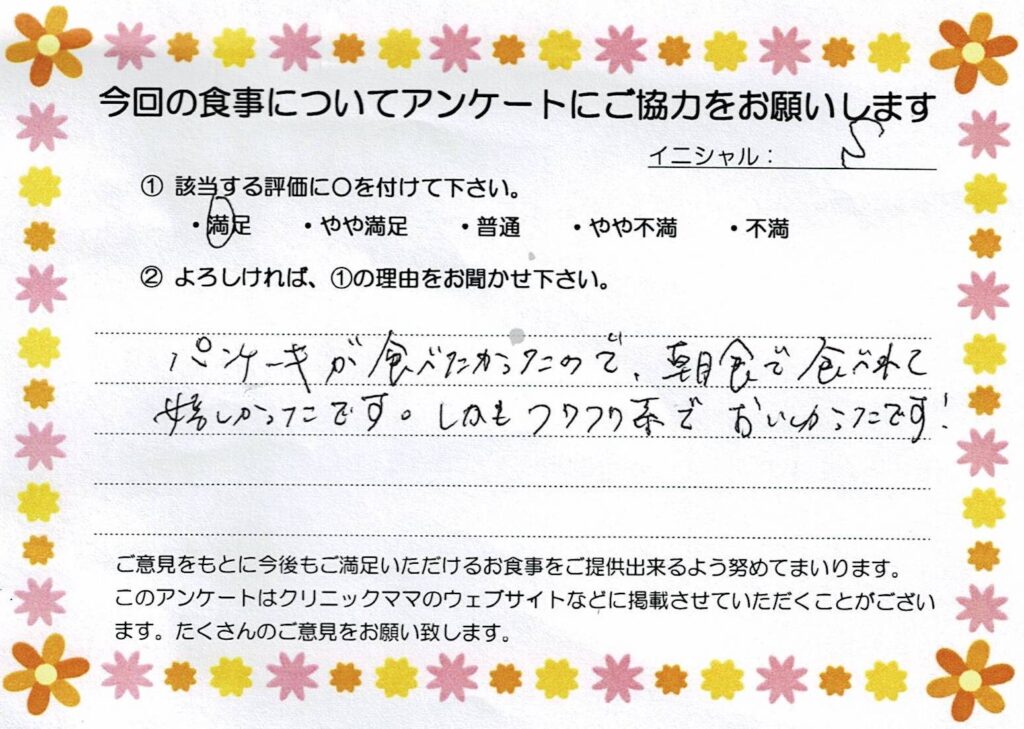 今回の食事についてアンケートにご協力をお願いします
イニシャル： S
① 該当する評価に〇を付けて下さい。
・満足 ・やや満足 ・普通 ・やや不満 ・不満
② よろしければ、①の理由をお聞かせ下さい。
パンケーキが食べたかったので、朝食で食べれて
嬉しかったです。しかもフワフワ系でおいしかったです!
ご意見をもとに今後もご満足いただけるお食事をご提供出来るよう努めてまいります。
このアンケートはクリニックママのウェブサイトなどに掲載させていただくことがござい
ます。たくさんのご意見をお願い致します。